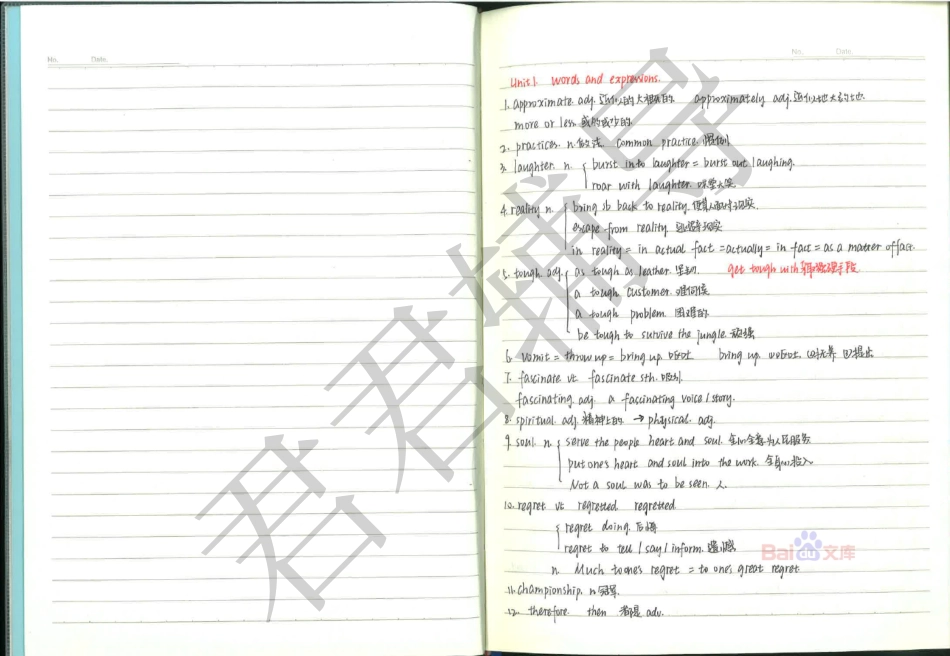 No. Date.
No. Date.
Unit 1. words and expressions.
1. approximate adj. 近似的大概的 approximately adj. 近似地大约地
more or less 或多或少的
2. practices. n 做法. common practice. 惯例
3. laughter. n. burst into laughter = burst out laughing.
roar with laughter. 哄堂大笑
4. reality n. bring sb back to reality. 使某人面对现实.
escape from reality 逃避现实
in reality = in actual fact = actually = in fact = as a matter of fact.
5. tough adj. as tough as leather. 坚韧. get tough with 采取强硬手段
a tough customer. 难伺候
a tough problem. 困难的
be tough to survive the jungle. 顽强
6. vomit = throw up = bring up. 呕吐 bring up. ①呕吐. ②抚养 ③提出
7. fascinate vt fascinate sth. 吸引.
fascinating. adj. a fascinating voice / story.
8. spiritual adj. 精神上的 → physical. adj.
9. soul. n. serve the people heart and soul. 全心全意为人民服务
put one's heart and soul into the work. 全身心投入
Not a soul was to be seen. 人.
10. regret vt regretted. regretted
regret doing. 后悔
regret to tell / say / inform. 遗憾
n. Much to one's regret = to one's great regret
11. championship. n 冠军.
12. therefore. then 都是 adv.
君君辅导
Bai du 文库